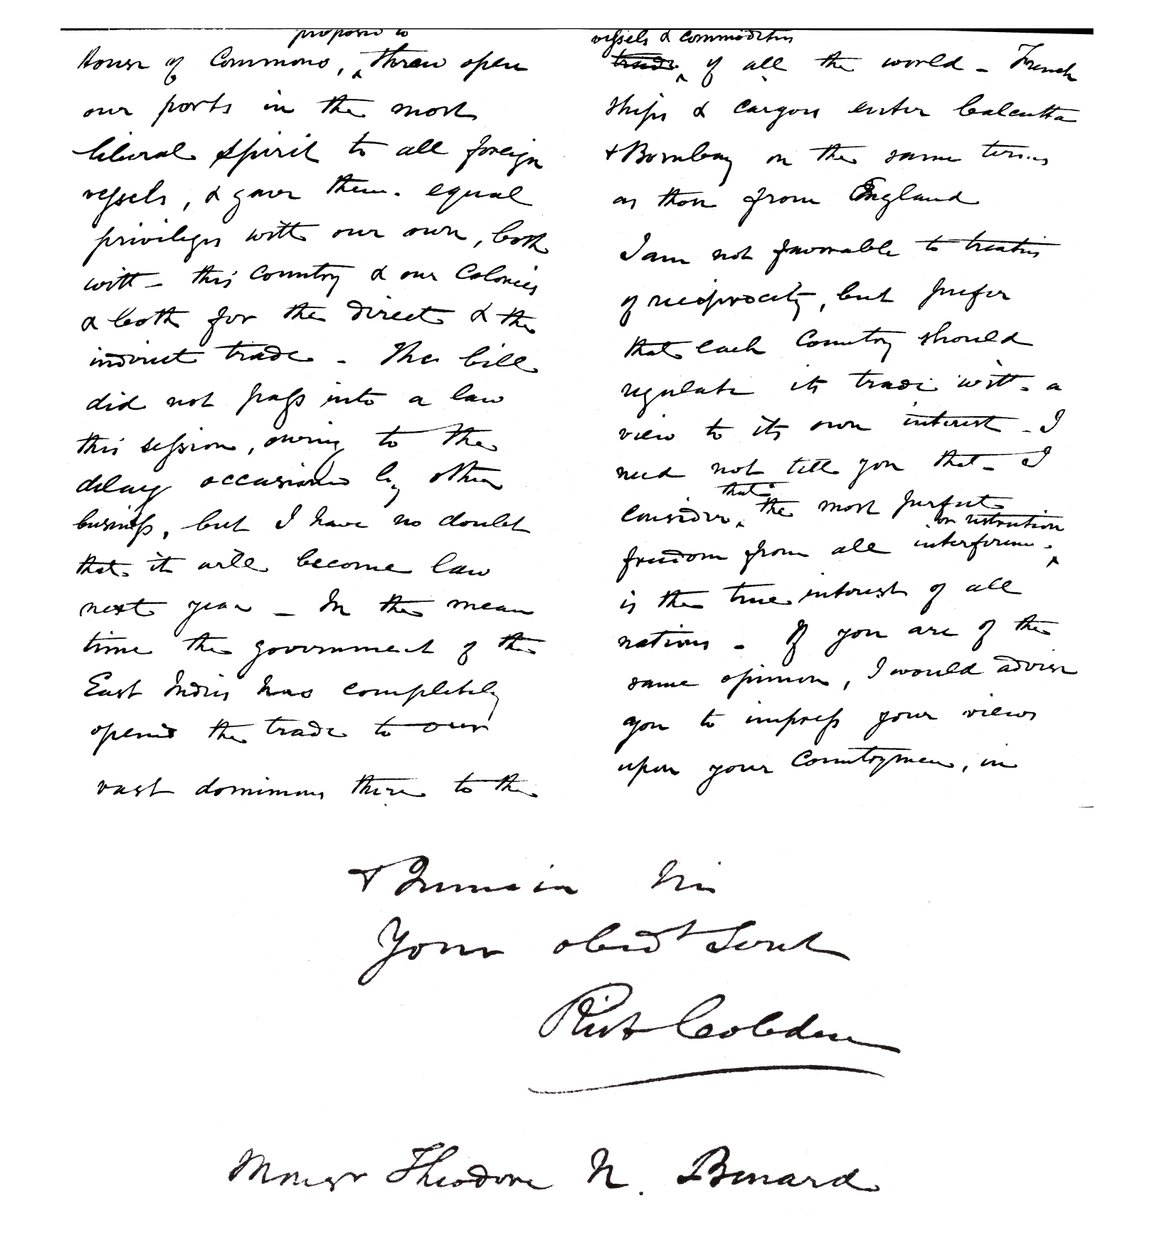 proposed to
House of Commons, threw open
our ports in the most
liberal spirit to all foreign
vessels, & gave them equal
privileges with our own, both
with this Country & our Colonies
& both for the direct & the
indirect trade - The bill
did not pass into a law
this session, owing to the
delay occasioned by other
business, but I have no doubt
that it will become law
next year - In the mean
time the government of the
East Indies has completely
opened the trade to our
vast dominions there to the
vessels & commodities
trade of all the world - French
ships & cargoes enter Calcutta
& Bombay on the same terms
as those from England
I am not favorable to treaties
of reciprocity, but prefer
that each Country should
regulate its trade with a
view to its own interest - I
need not tell you that I
that
consider the most perfect
or restriction
freedom from all interference
is the true interest of all
nations - If you are of the
same opinion, I would advise
you to impress your views
upon your Countrymen, in
& I remain Sir
Your obedt Servt
Richd Cobden
Monsr Theodore N. Benard